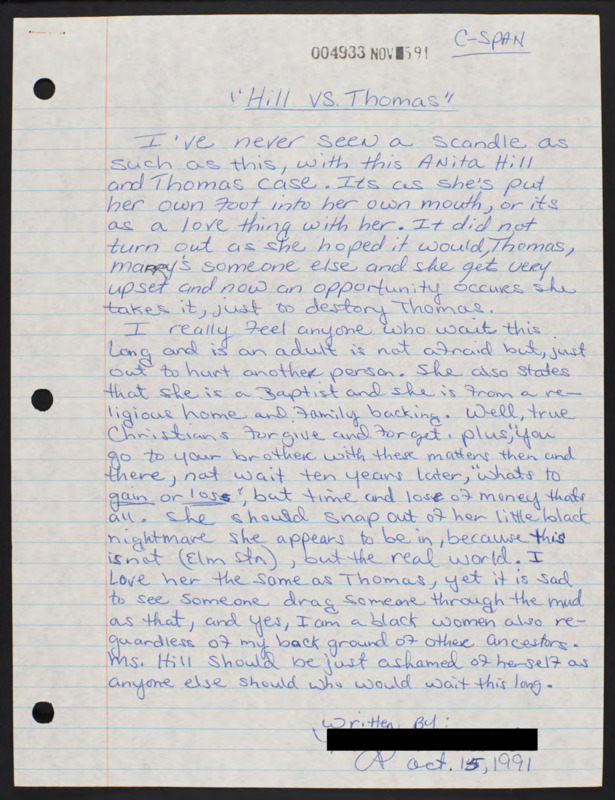 C-SPAN
004933 NOV 591
"Hill vs. Thomas"
I've never seen a scandle as
such as this, with this Anita Hill
and Thomas case. Its as she's put
her own foot into her own mouth, or its
as a love thing with her. It did not
turn out as she hoped it would, Thomas,
marry's someone else and she get very
upset and now an opportunity occures she
takes it, just to destory Thomas.
I really feel anyone who wait this
long and is an adult is not afraid but, just
out to hurt another person. She also states
that she is a Baptist and she is from a re-
ligious home and family backing. Well, true
Christians forgive and forget. plus, "you
go to your brother with these matters then and
there, not wait ten years later, "whats to
gain or loss", but time and lose of money thats
all. She should snap out of her little black
nightmare she appears to be in, because this
is not (Elm Stn), but the real world. I
Love her the same as Thomas, yet it is sad
to see someone drag someone through the mud
as that, and yes, I am a black women also re-
guardless of my back ground of other ancestors.
Ms. Hill should be just ashamed of herself as
anyone else should who would wait this long.
Written By:
Oct. 15, 1991